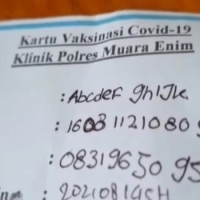 Kartu Vaksinasi Covid-19
Klinik Polres Muara Enim
: Abcdef ghIJk
: 1603 1121080 9
: 0831965095
: 2021081